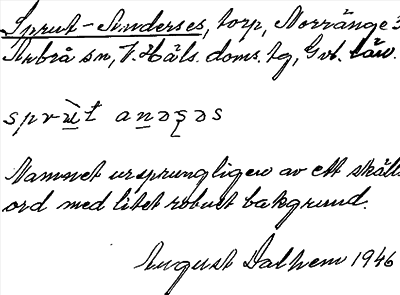 Sprut-Anderses, torp, Norränge 3
Arbrå sn, V. Häls. doms. tg, Gvb. län.
sprùt anəʂəs
Namnet ursprungligen av ett skälls
ord med litet robust bakgrund.
August Dalhem 1946